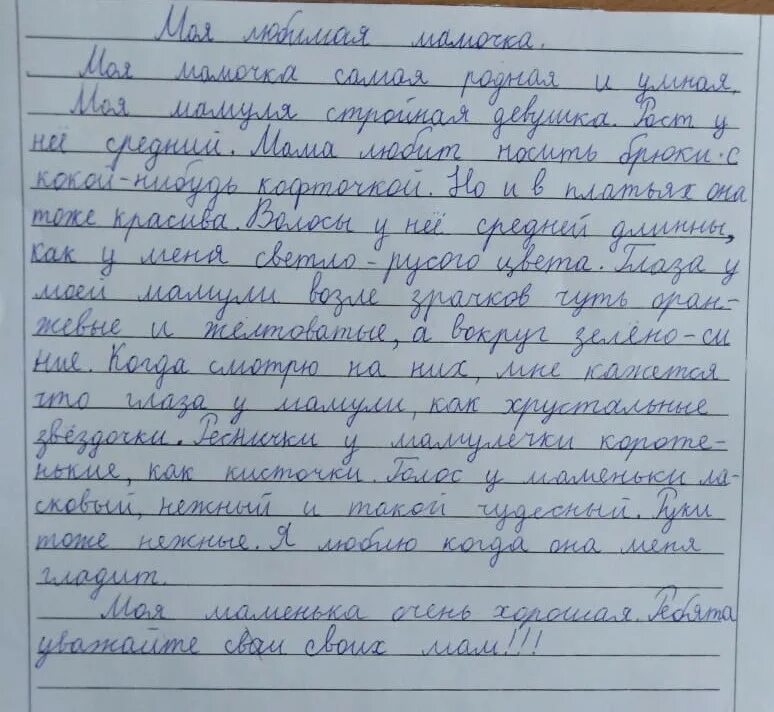 Моя любимая мамочка.
Моя мамочка самая родная и умная.
Моя мамуля стройная девушка. Рост у
неё средний. Мама любит носить брюки с
кокой-нибудь кофточкой. Но и в платьях она
тоже красива. Волосы у неё средней длинны,
как у меня светло-русого цвета. Глаза у
моей мамули возле зрачков чуть оран-
жевые и желтоватые, а вокруг зелёно-си
ние. Когда смотрю на них, мне кажется
что глаза у мамули, как хрустальные
звёздочки. Реснички у мамулечки короте-
нькие, как кисточки. Голос у маменьки ла-
сковый, нежный и такой чудесный. Руки
тоже нежные. Я люблю когда она меня
гладит.
Моя маменька очень хорошая. Ребята
уважайте сваи своих мам!!!